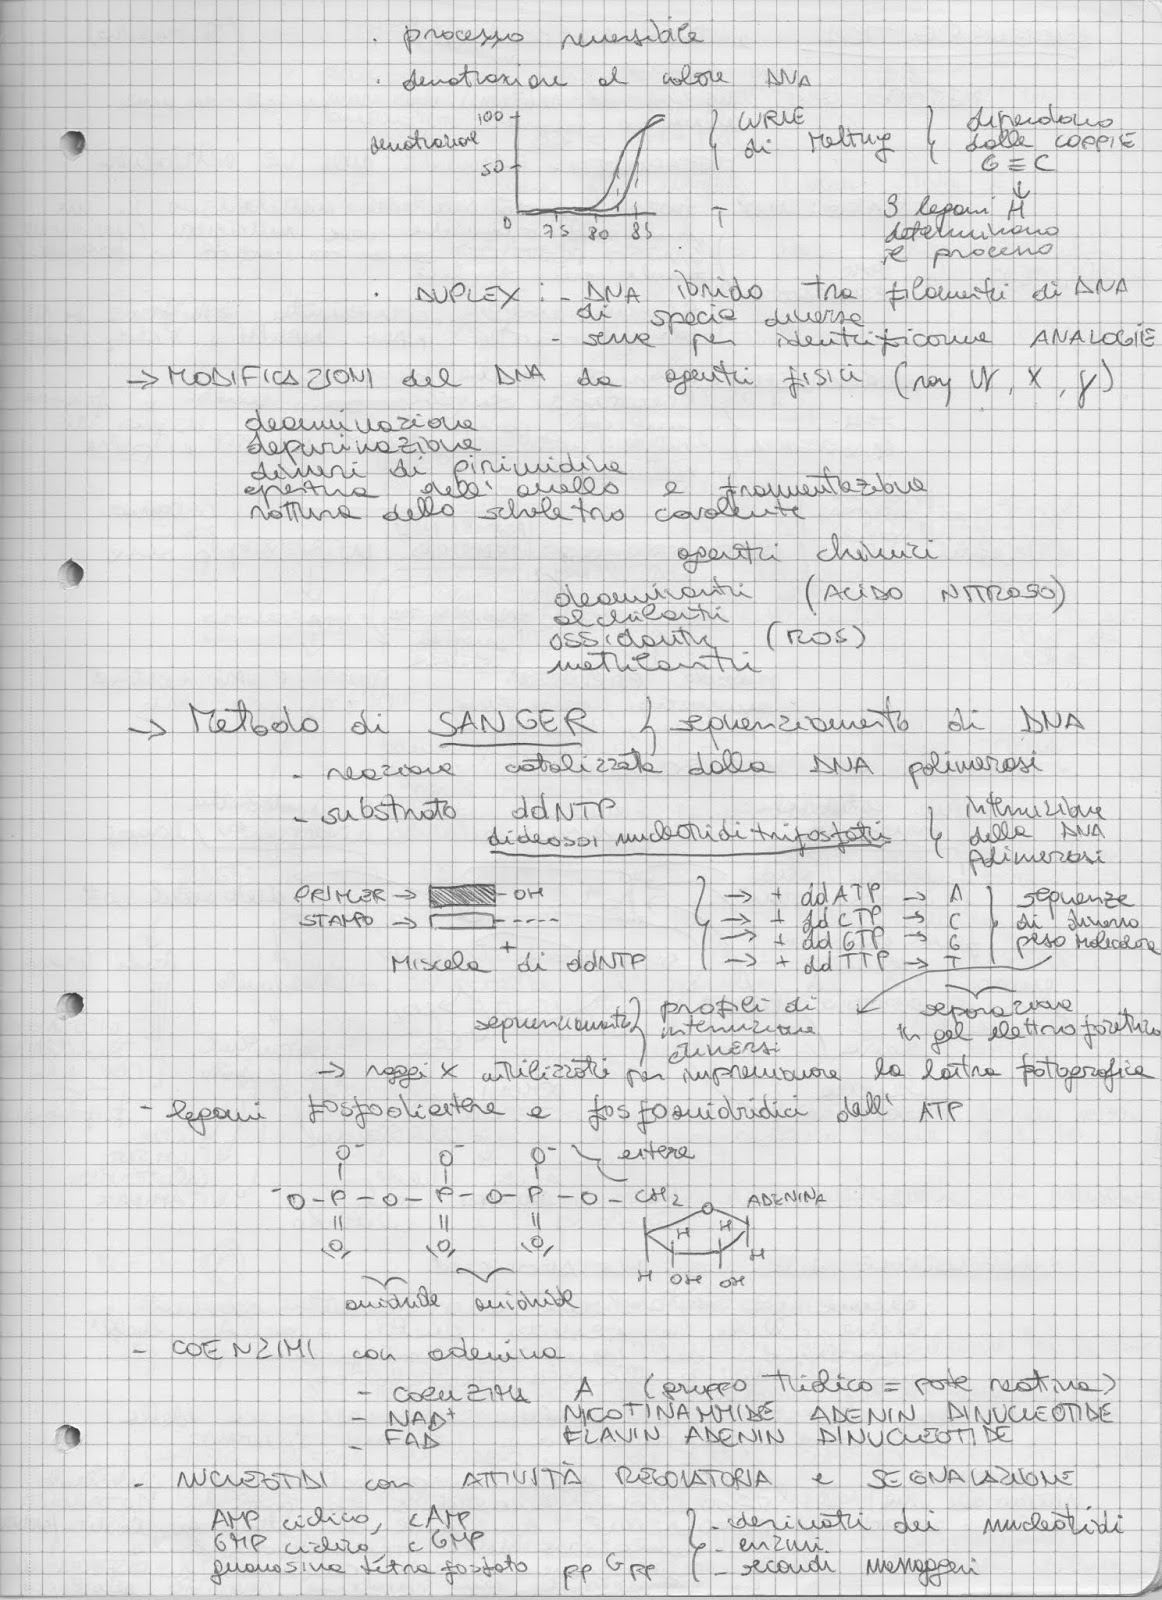 . processo reversibile
. denaturazione al calore DNA
denaturazione
100
50
0 75 80 85 T
CURVE di Melting
dipendono dalle COPPIE
G≡C
↓
3 legami H
determinano
il processo
. DUPLEX : - DNA ibrido tra filamenti di DNA
di specie diverse
- serve per identificarne ANALOGIE
→ MODIFICAZIONI del DNA da agenti fisici (ray UV, X, γ)
deaminazione
depurinazione
dimeri di pirimidina
apertura dell'anello e frammentazione
rottura dello scheletro covalente
agenti chimici
deaminanti (ACIDO NITROSO)
alchilanti
ossidanti (ROS)
metilanti
→ Metodo di SANGER } sequenziamento di DNA
- reazione catalizzata dalla DNA polimerasi
- substrato ddNTP
dideossi nucleotidi trifosfati
} interruzione
della DNA
polimerasi
PRIMER → - OH
STAMPO → -----
+
Miscela di ddNTP
→ + ddATP → A
→ + ddCTP → C
→ + ddGTP → G
→ + ddTTP → T
sequenze
di diverso
peso molecolare
separazione
in gel elettroforetico
sequenziamento } profili di
interruzione
diversi
→ raggi X utilizzati per impressionare la lastra fotografica
- legami fosfodiestere e fosfoanidridici dell' ATP
O⁻ O⁻ O⁻ estere
⁻O-P-O-P-O-P-O-CH2 O ADENINA
O O O
H H H H
OH OH
anidride anidride
- COENZIMI con adenina
- COENZIMA A (gruppo tiolico = parte reattiva)
- NAD⁺ NICOTINAMMIDE ADENIN DINUCLEOTIDE
- FAD FLAVIN ADENIN DINUCLEOTIDE
- NUCLEOTIDI con ATTIVITÀ REGOLATORIA e SEGNALAZIONE
AMP ciclico, cAMP
GMP ciclico, cGMP
guanosina tetrafosfato ppGpp
- derivati dei nucleotidi
- enzimi
- secondi messaggeri